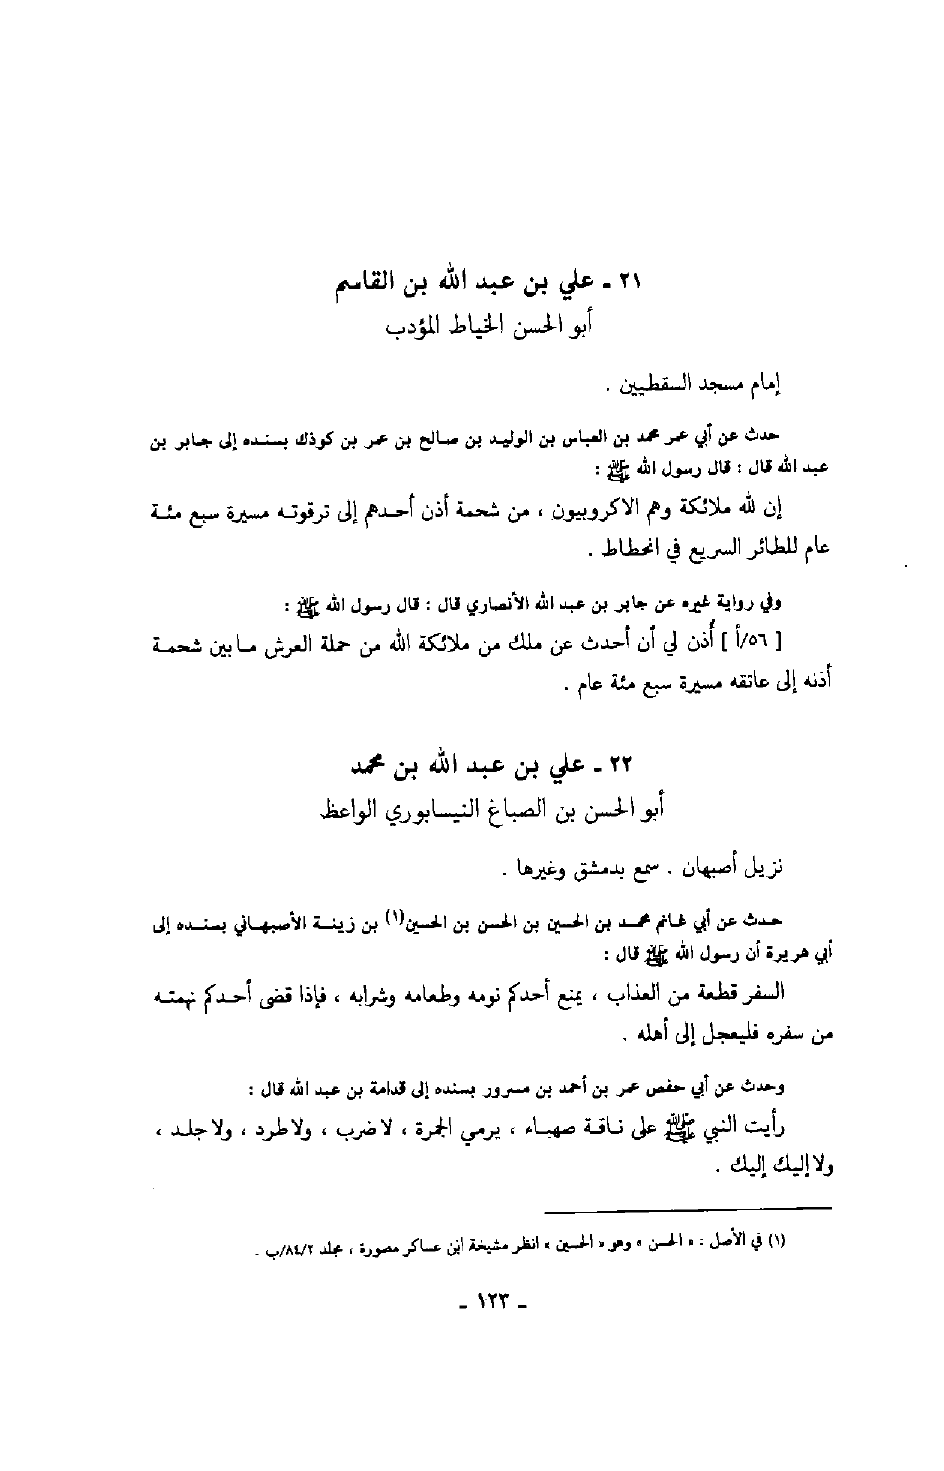 ٢١ ـ علي بن عبد الله بن القاسم
أبو الحسن الخياط المؤدب
إمام مسجد السقطيين .
حدث عن أبي عمر محمد بن العباس بن الوليد بن صالح بن عمر بن كوذك بسنده إلى جابر بن
عبد الله قال : قال رسول الله ﷺ :
إن لله ملائكة وهم الاكروبيون ، من شحمة أذن أحدهم إلى ترقوته مسيرة سبع مئة
عام للطائر السريع في انحطاط .
وفي رواية غيره عن جابر بن عبد الله الأنصاري قال : قال رسول الله ﷺ :
[ ٥٦/أ ] أُذن لي أن أحدث عن ملك من ملائكة الله من حملة العرش مابين شحمة
أذنه إلى عاتقه مسيرة سبع مئة عام .
٢٢ ـ علي بن عبد الله بن محمد
أبو الحسن بن الصباغ النيسابوري الواعظ
نزيل أصبهان . سمع بدمشق وغيرها .
حدث عن أبي غانم محمد بن الحسين بن الحسن بن الحسين(١) بن زينة الأصبهاني بسنده إلى
أبي هريرة أن رسول الله ﷺ قال :
السفر قطعة من العذاب ، يمنع أحدكم نومه وطعامه وشرابه ، فإذا قضى أحدكم نهمته
من سفره فليعجل إلى أهله .
وحدث عن أبي حفص عمر بن أحمد بن مسرور بسنده إلى قدامة بن عبد الله قال :
رأيت النبي ﷺ على ناقة صهباء ، يرمي الجمرة ، لاضرب ، ولاطرد ، ولاجلد ،
ولاإليك إليك .
(١) في الأصل : « الحسن » وهو « الحسين » انظر مشيخة ابن عساكر مصورة ، مجلد ٨٤/٢/ب .
ـ ١٢٣ ـ